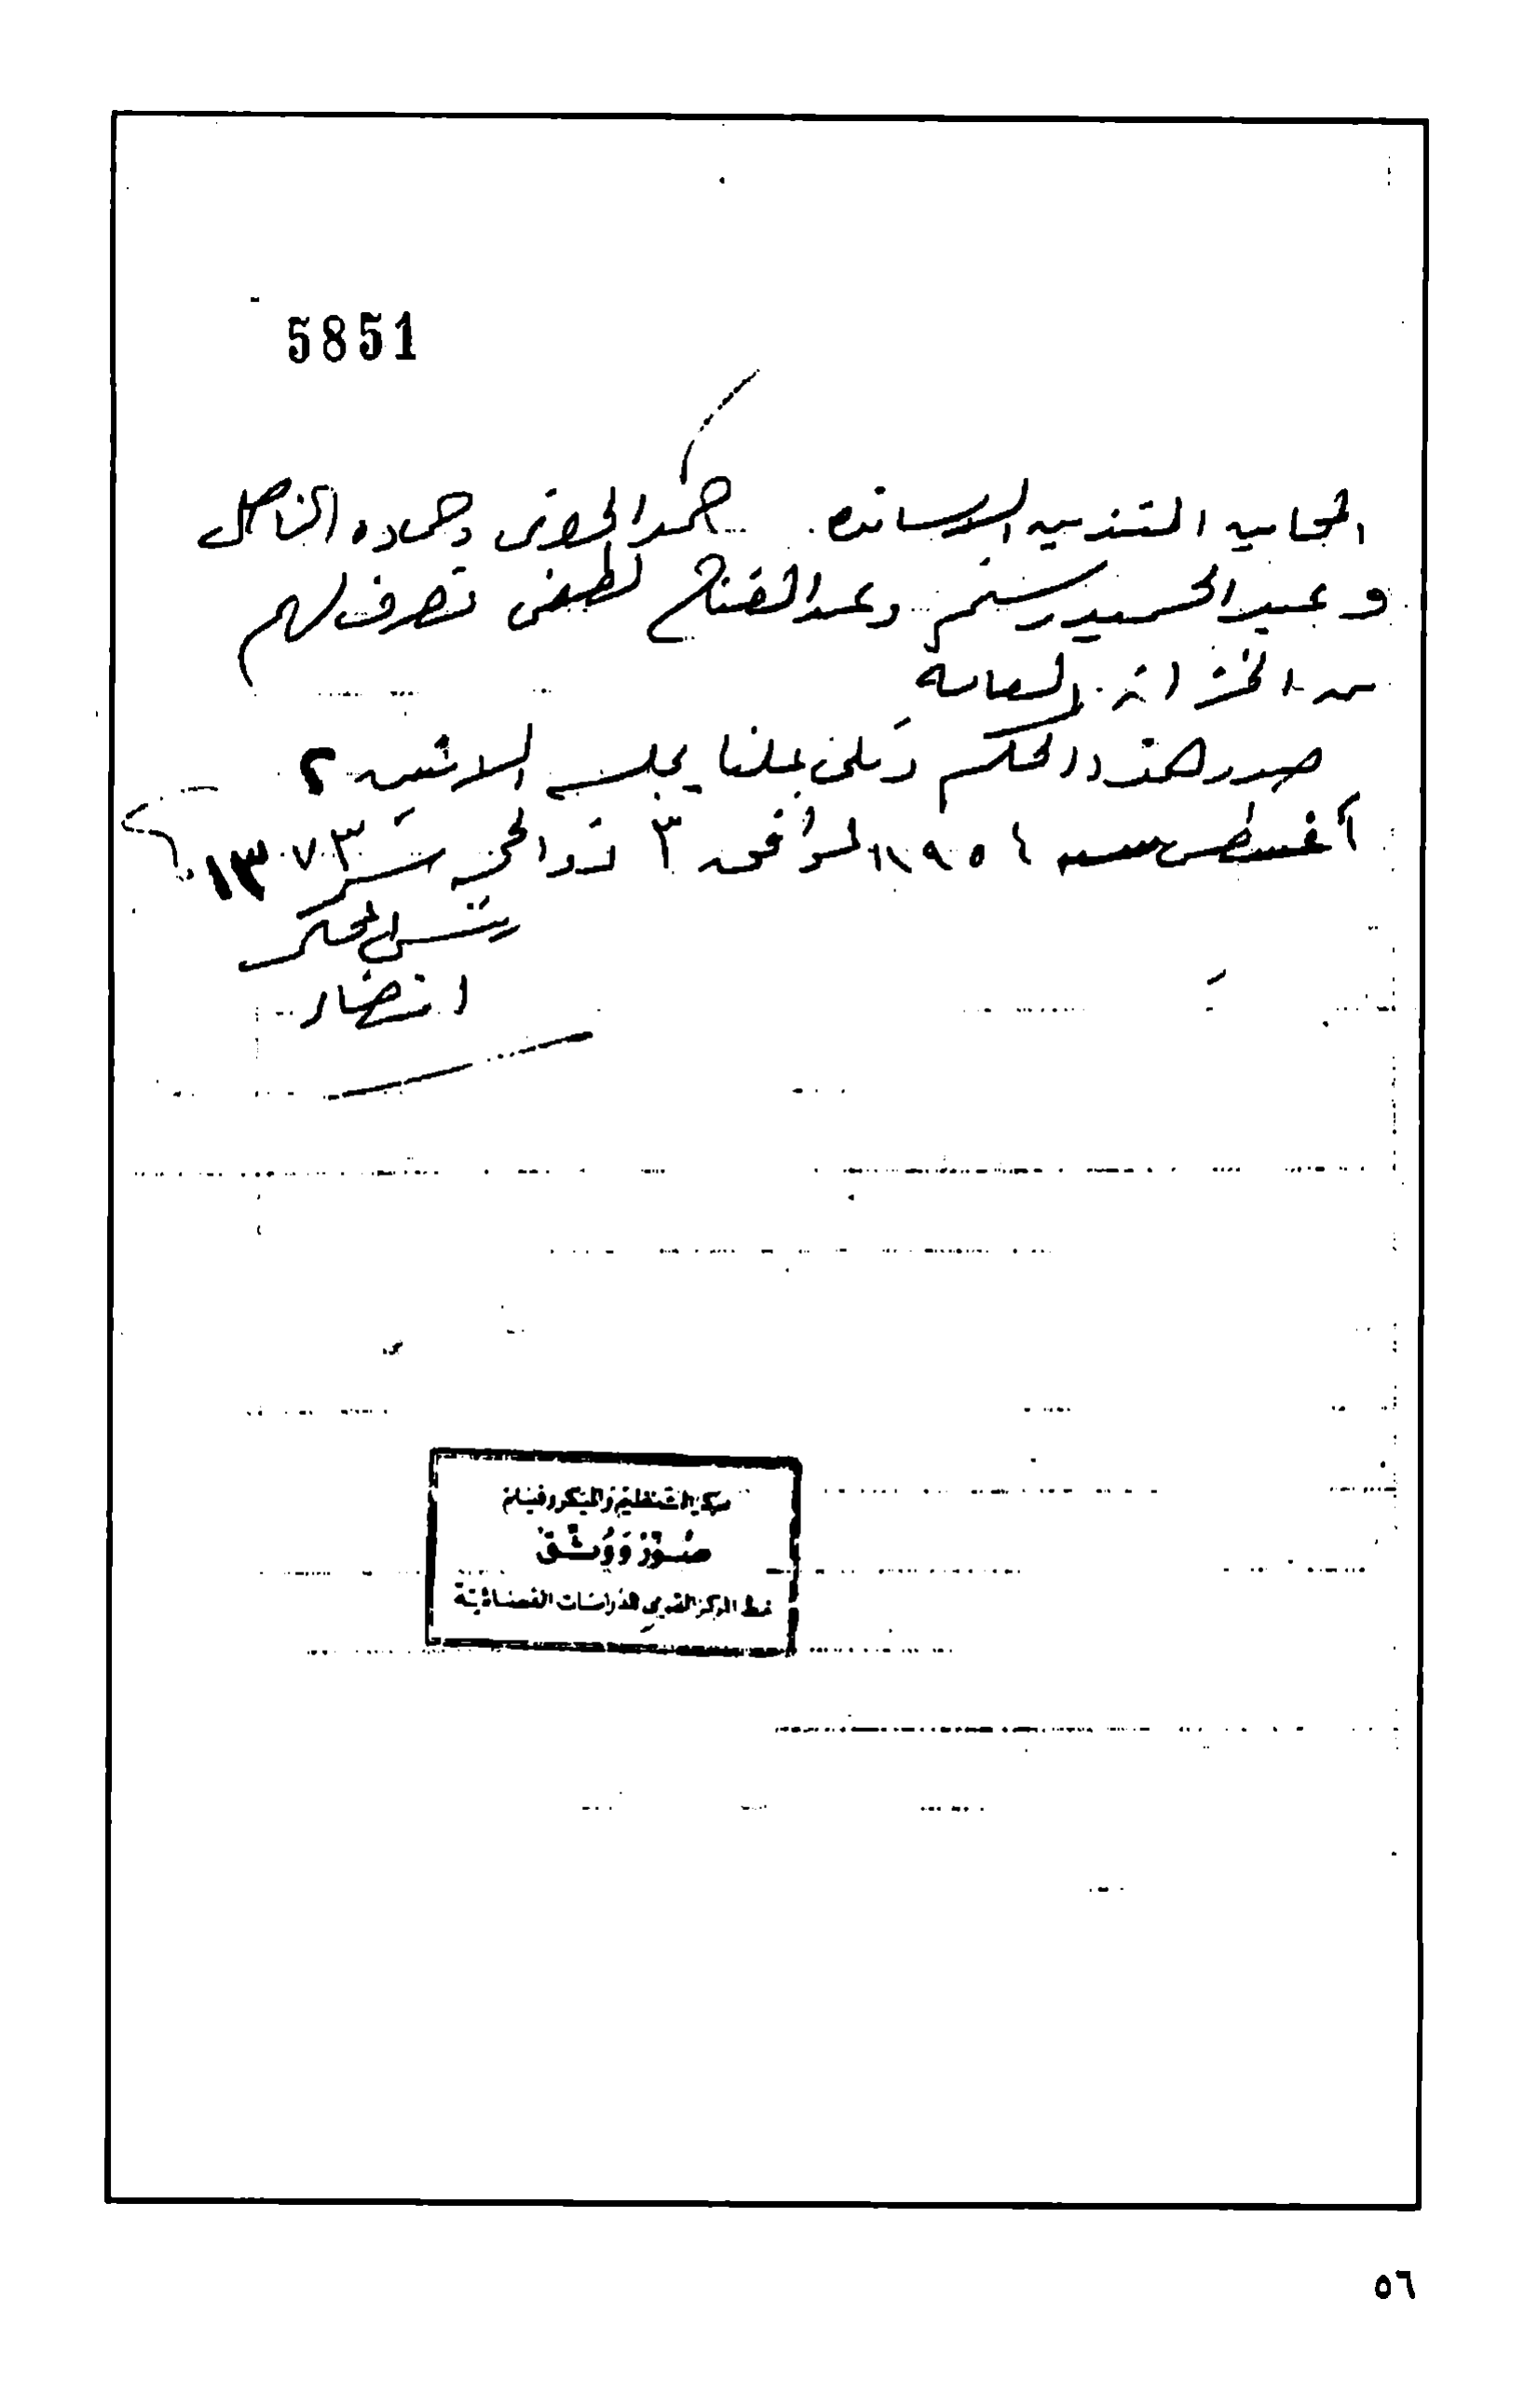 5851
المحامين المنتدبين الاساتذه حمد الجلاوى وحماده الناحل
و عبد الحميد رستم وعبد الفتاح لطفى تصرف لهم
من الخزانة العامة
صدر هذا الحكم وتلى علنا بجلسة الاثنين ٢
أغسطس سنة ١٩٥٤ الموافق ٣ ذو الحجة سنة ١٣٧٣
رئيس المحكمة
مركز التنظيم والميكروفيلم
صُوّرَ وَوُثّقَ
المركز القومى للدراسات القضائية
٥٦